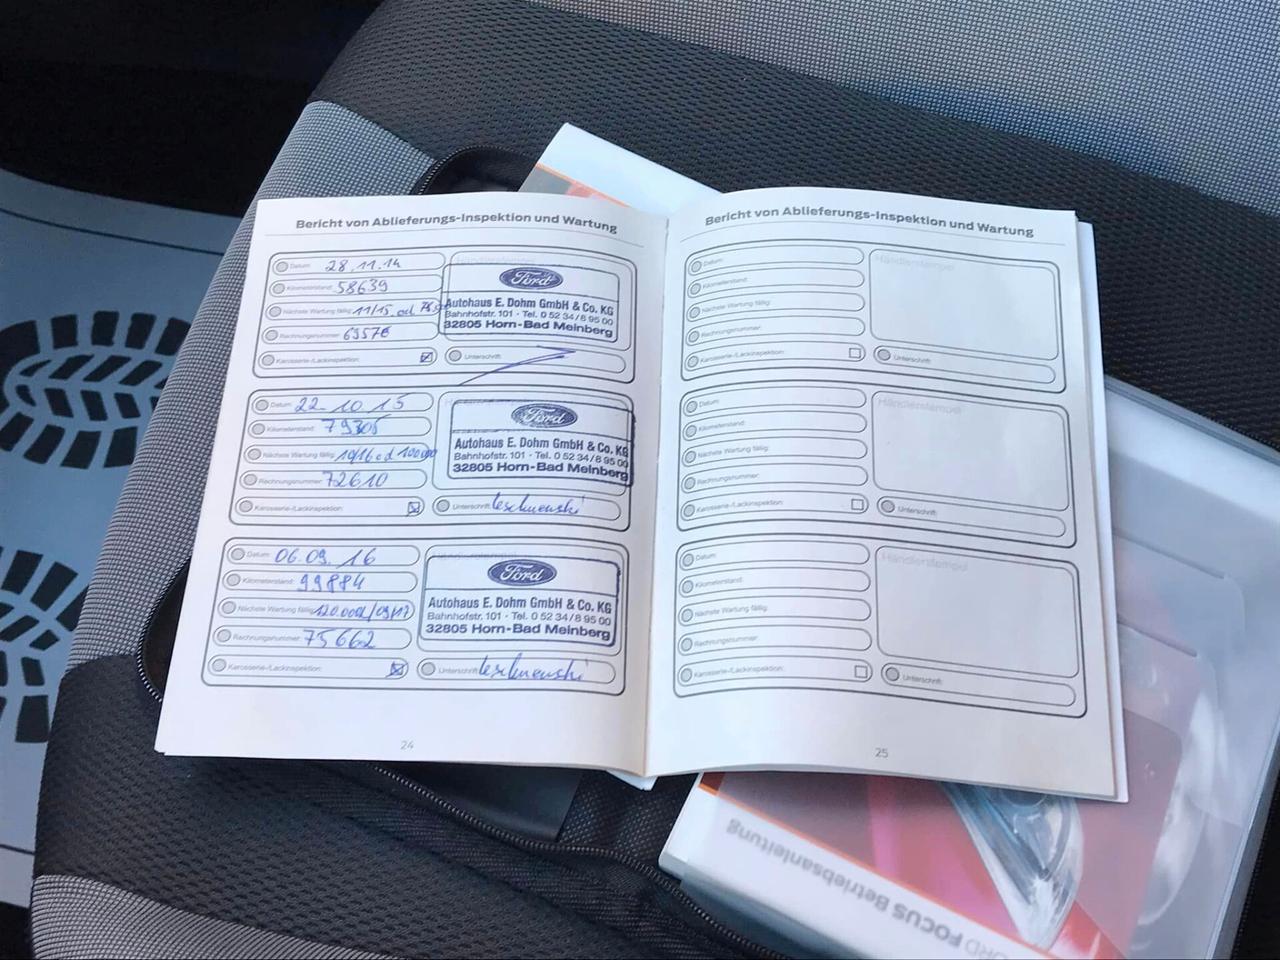 Bericht von Ablieferungs-Inspektion und Wartung
Datum: 28.11.14
Kilometerstand: 58639
Nächste Wartung fällig: 11/15 od
Rechnungsnummer: 63578
Karosserie-/Lackinspektion:
Händlerstempel
Ford
Autohaus E. Dohm GmbH & Co. KG
Bahnhofstr. 101 · Tel. 0 52 34 / 8 95 00
32805 Horn-Bad Meinberg
Unterschrift:
Datum: 22.10.15
Kilometerstand: 79305
Nächste Wartung fällig: 10/16 od 100000
Rechnungsnummer: 72610
Karosserie-/Lackinspektion:
Ford
Autohaus E. Dohm GmbH & Co. KG
Bahnhofstr. 101 · Tel. 0 52 34 / 8 95 00
32805 Horn-Bad Meinberg
Unterschrift:
Datum: 06.09.16
Kilometerstand: 99884
Nächste Wartung fällig: 120.000/09/17
Rechnungsnummer: 75662
Karosserie-/Lackinspektion:
Händlerstempel
Ford
Autohaus E. Dohm GmbH & Co. KG
Bahnhofstr. 101 · Tel. 0 52 34 / 8 95 00
32805 Horn-Bad Meinberg
Unterschrift:
24
Bericht von Ablieferungs-Inspektion und Wartung
Datum:
Kilometerstand:
Nächste Wartung fällig:
Rechnungsnummer:
Karosserie-/Lackinspektion:
Händlerstempel
Unterschrift:
Datum:
Kilometerstand:
Nächste Wartung fällig:
Rechnungsnummer:
Karosserie-/Lackinspektion:
Händlerstempel
Unterschrift:
Datum:
Kilometerstand:
Nächste Wartung fällig:
Rechnungsnummer:
Karosserie-/Lackinspektion:
Händlerstempel
Unterschrift:
25
FORD FOCUS Betriebsanleitung